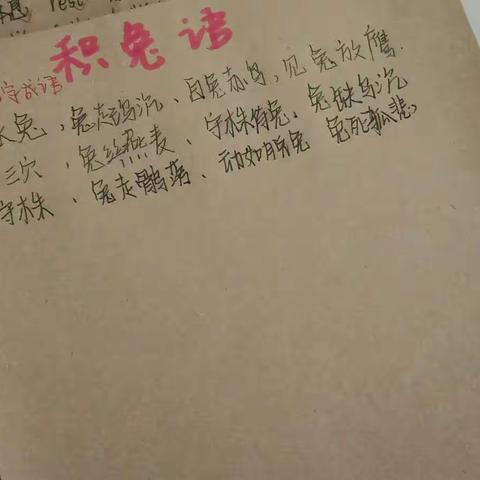 Test
积兔语
字成语
兔,兔走乌沉、白兔赤乌,见兔放鹰.
三穴、兔丝燕麦、守株待兔、兔缺乌沉
守株、兔走鹘落、动如脱兔 兔死狐悲、